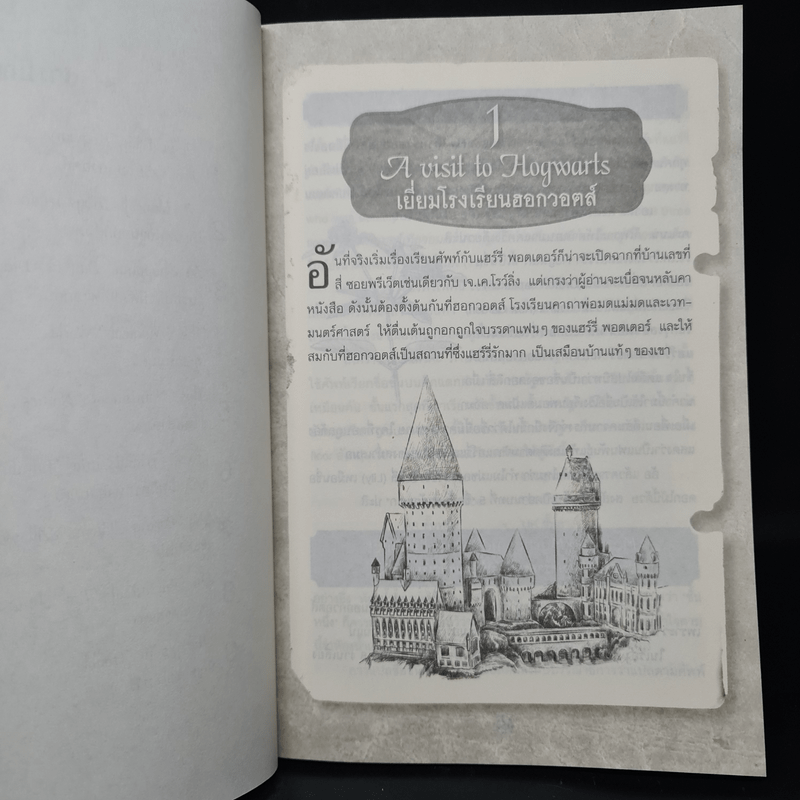 1
A visit to Hogwarts
เยี่ยมโรงเรียนฮอกวอตส์
อันที่จริงเริ่มเรื่องเรียนศัพท์กับแฮร์รี่ พอตเตอร์ก็น่าจะเปิดฉากที่บ้านเลขที่
สี่ ซอยพรีเว็ตเช่นเดียวกับ เจ.เค.โรว์ลิ่ง แต่เกรงว่าผู้อ่านจะเบื่อจนหลับคา
หนังสือ ดังนั้นต้องตั้งต้นกันที่ฮอกวอตส์ โรงเรียนคาถาพ่อมดแม่มดและเวท-
มนตร์ศาสตร์ ให้ตื่นเต้นถูกอกถูกใจบรรดาแฟนๆ ของแฮร์รี่ พอตเตอร์ และให้
สมกับที่ฮอกวอตส์เป็นสถานที่ซึ่งแฮร์รี่รักมาก เป็นเสมือนบ้านแท้ๆ ของเขา